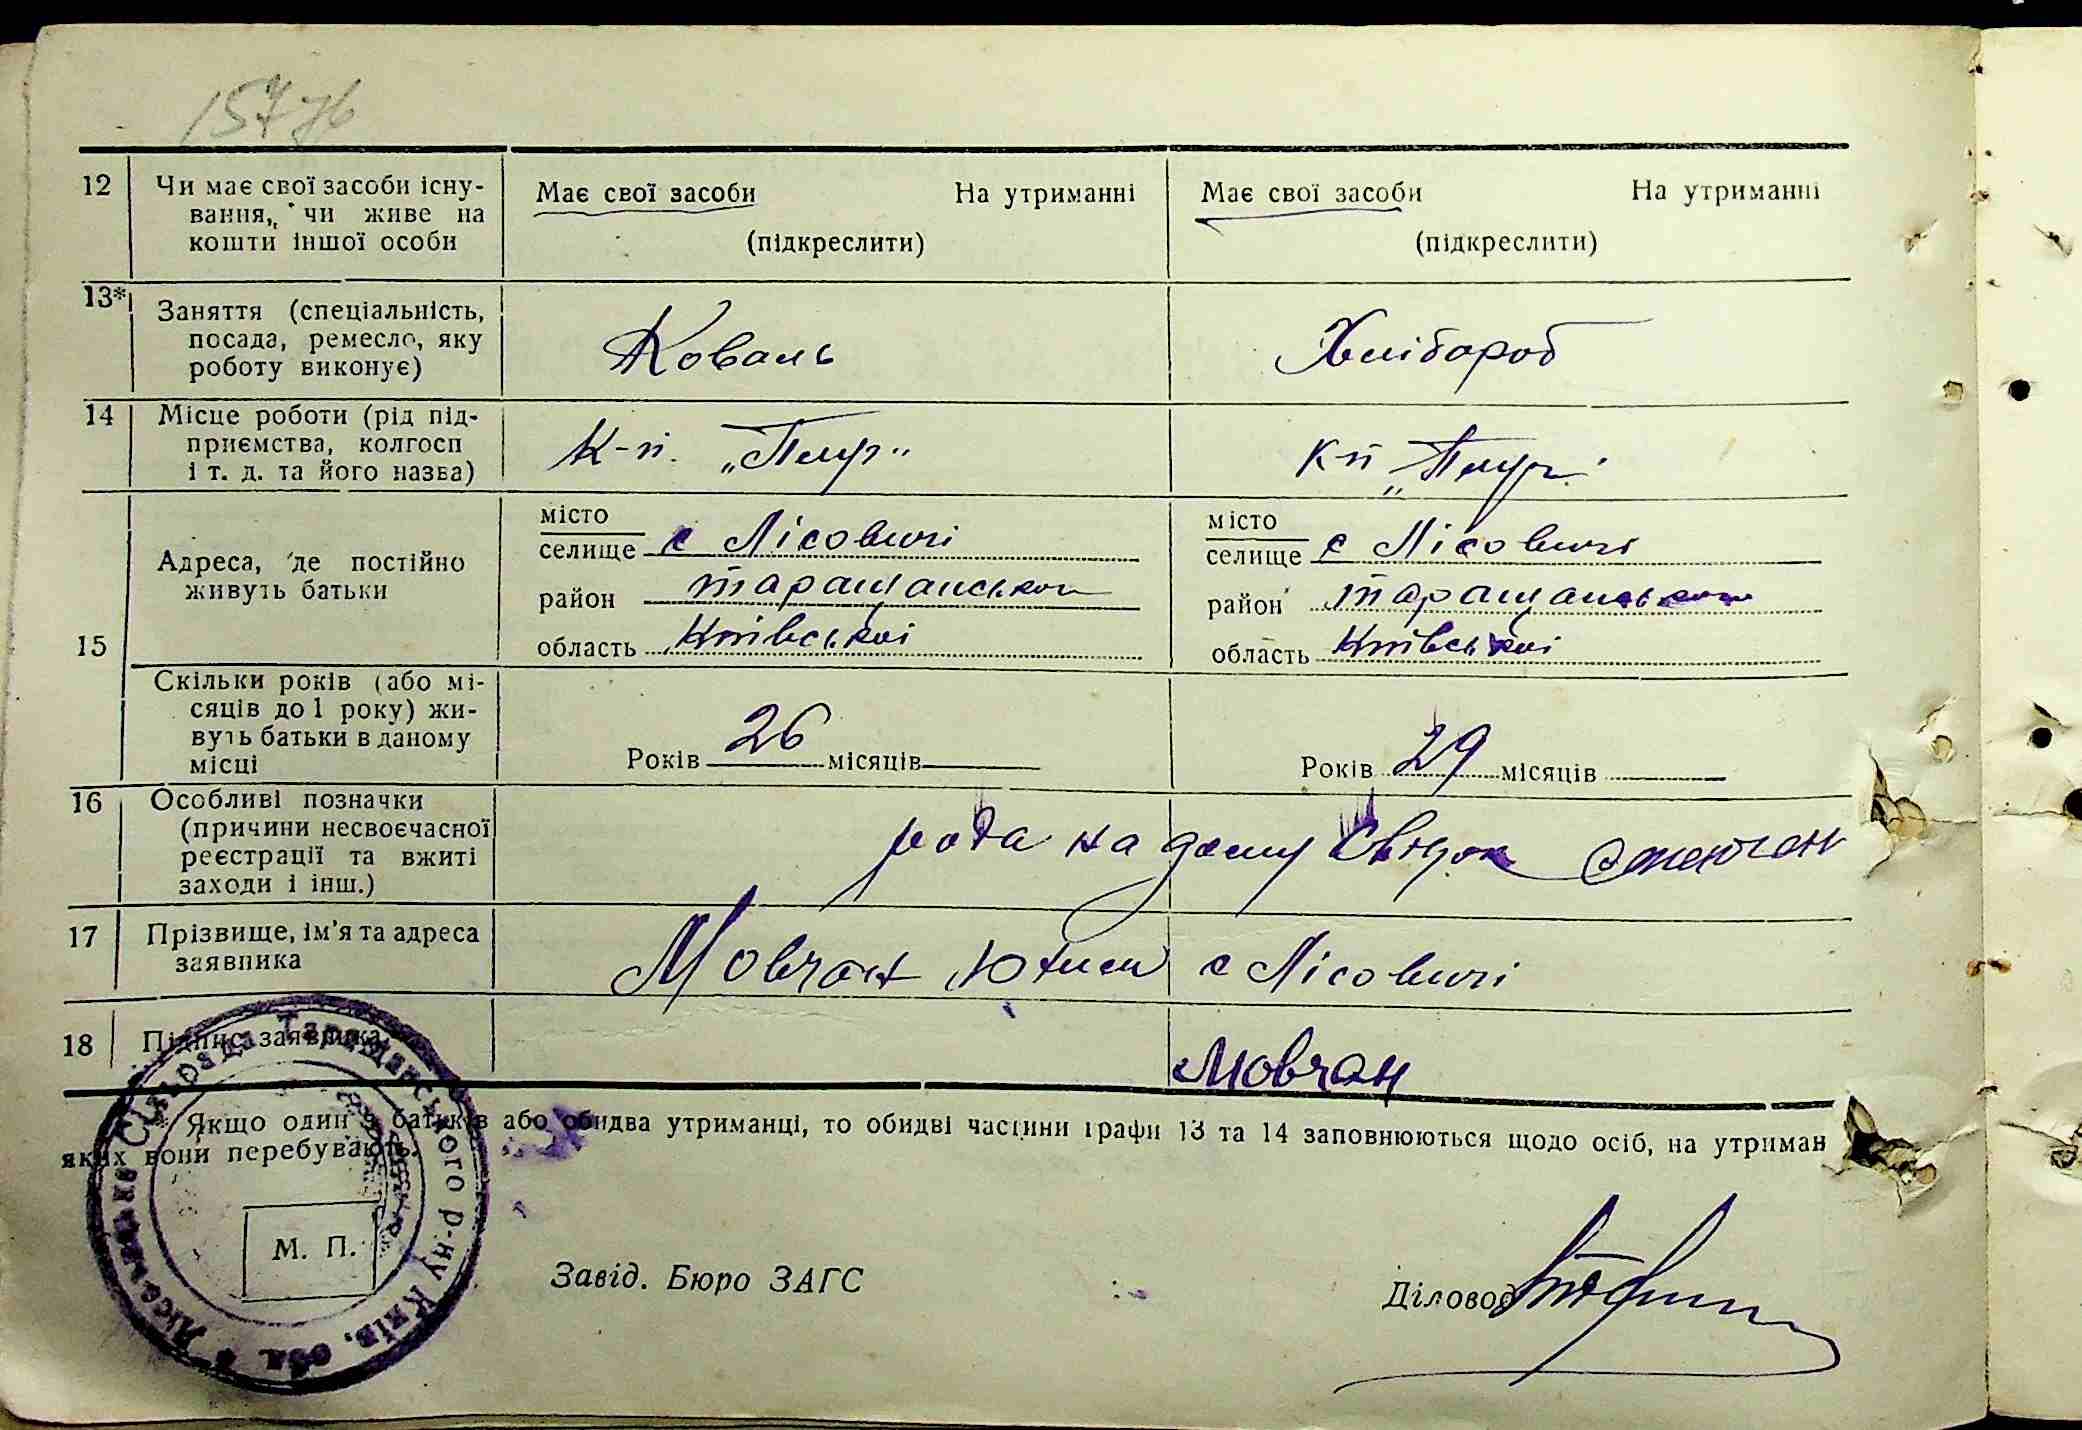 12 Чи має свої засоби існу-
вання, чи живе на
кошти іншої особи
Має свої засоби На утриманні
(підкреслити)
Має свої засоби На утриманні
(підкреслити)
13* Заняття (спеціальність,
посада, ремесло, яку
роботу виконує)
Коваль
Хлібороб
14 Місце роботи (рід під-
приємства, колгосп
і т. д. та його назва)
К-п.
кп
15 Адреса, де постійно
живуть батьки
місто
селище с Лісовичі
район таращанського
область Київської
місто
селище с Лісовичі
район таращанського
область Київської
Скільки років (або мі-
сяців до 1 року) жи-
вуть батьки в даному
місці
Років 26 місяців
Років 29 місяців
16 Особливі позначки
(причини несвоєчасної
реєстрації та вжиті
заходи і інш.)
на дому
17 Прізвище, ім'я та адреса
заявника
Мовчан с Лісовичі
18 Підпис заявника
Мовчан
* Якщо один з батьків або обидва утриманці, то обидві частини графи 13 та 14 заповнюються щодо осіб, на утриман
яких вони перебувають.
М. П.
Завід. Бюро ЗАГС
Діловод
Сільрада Таращанського р-ну Київ. обл